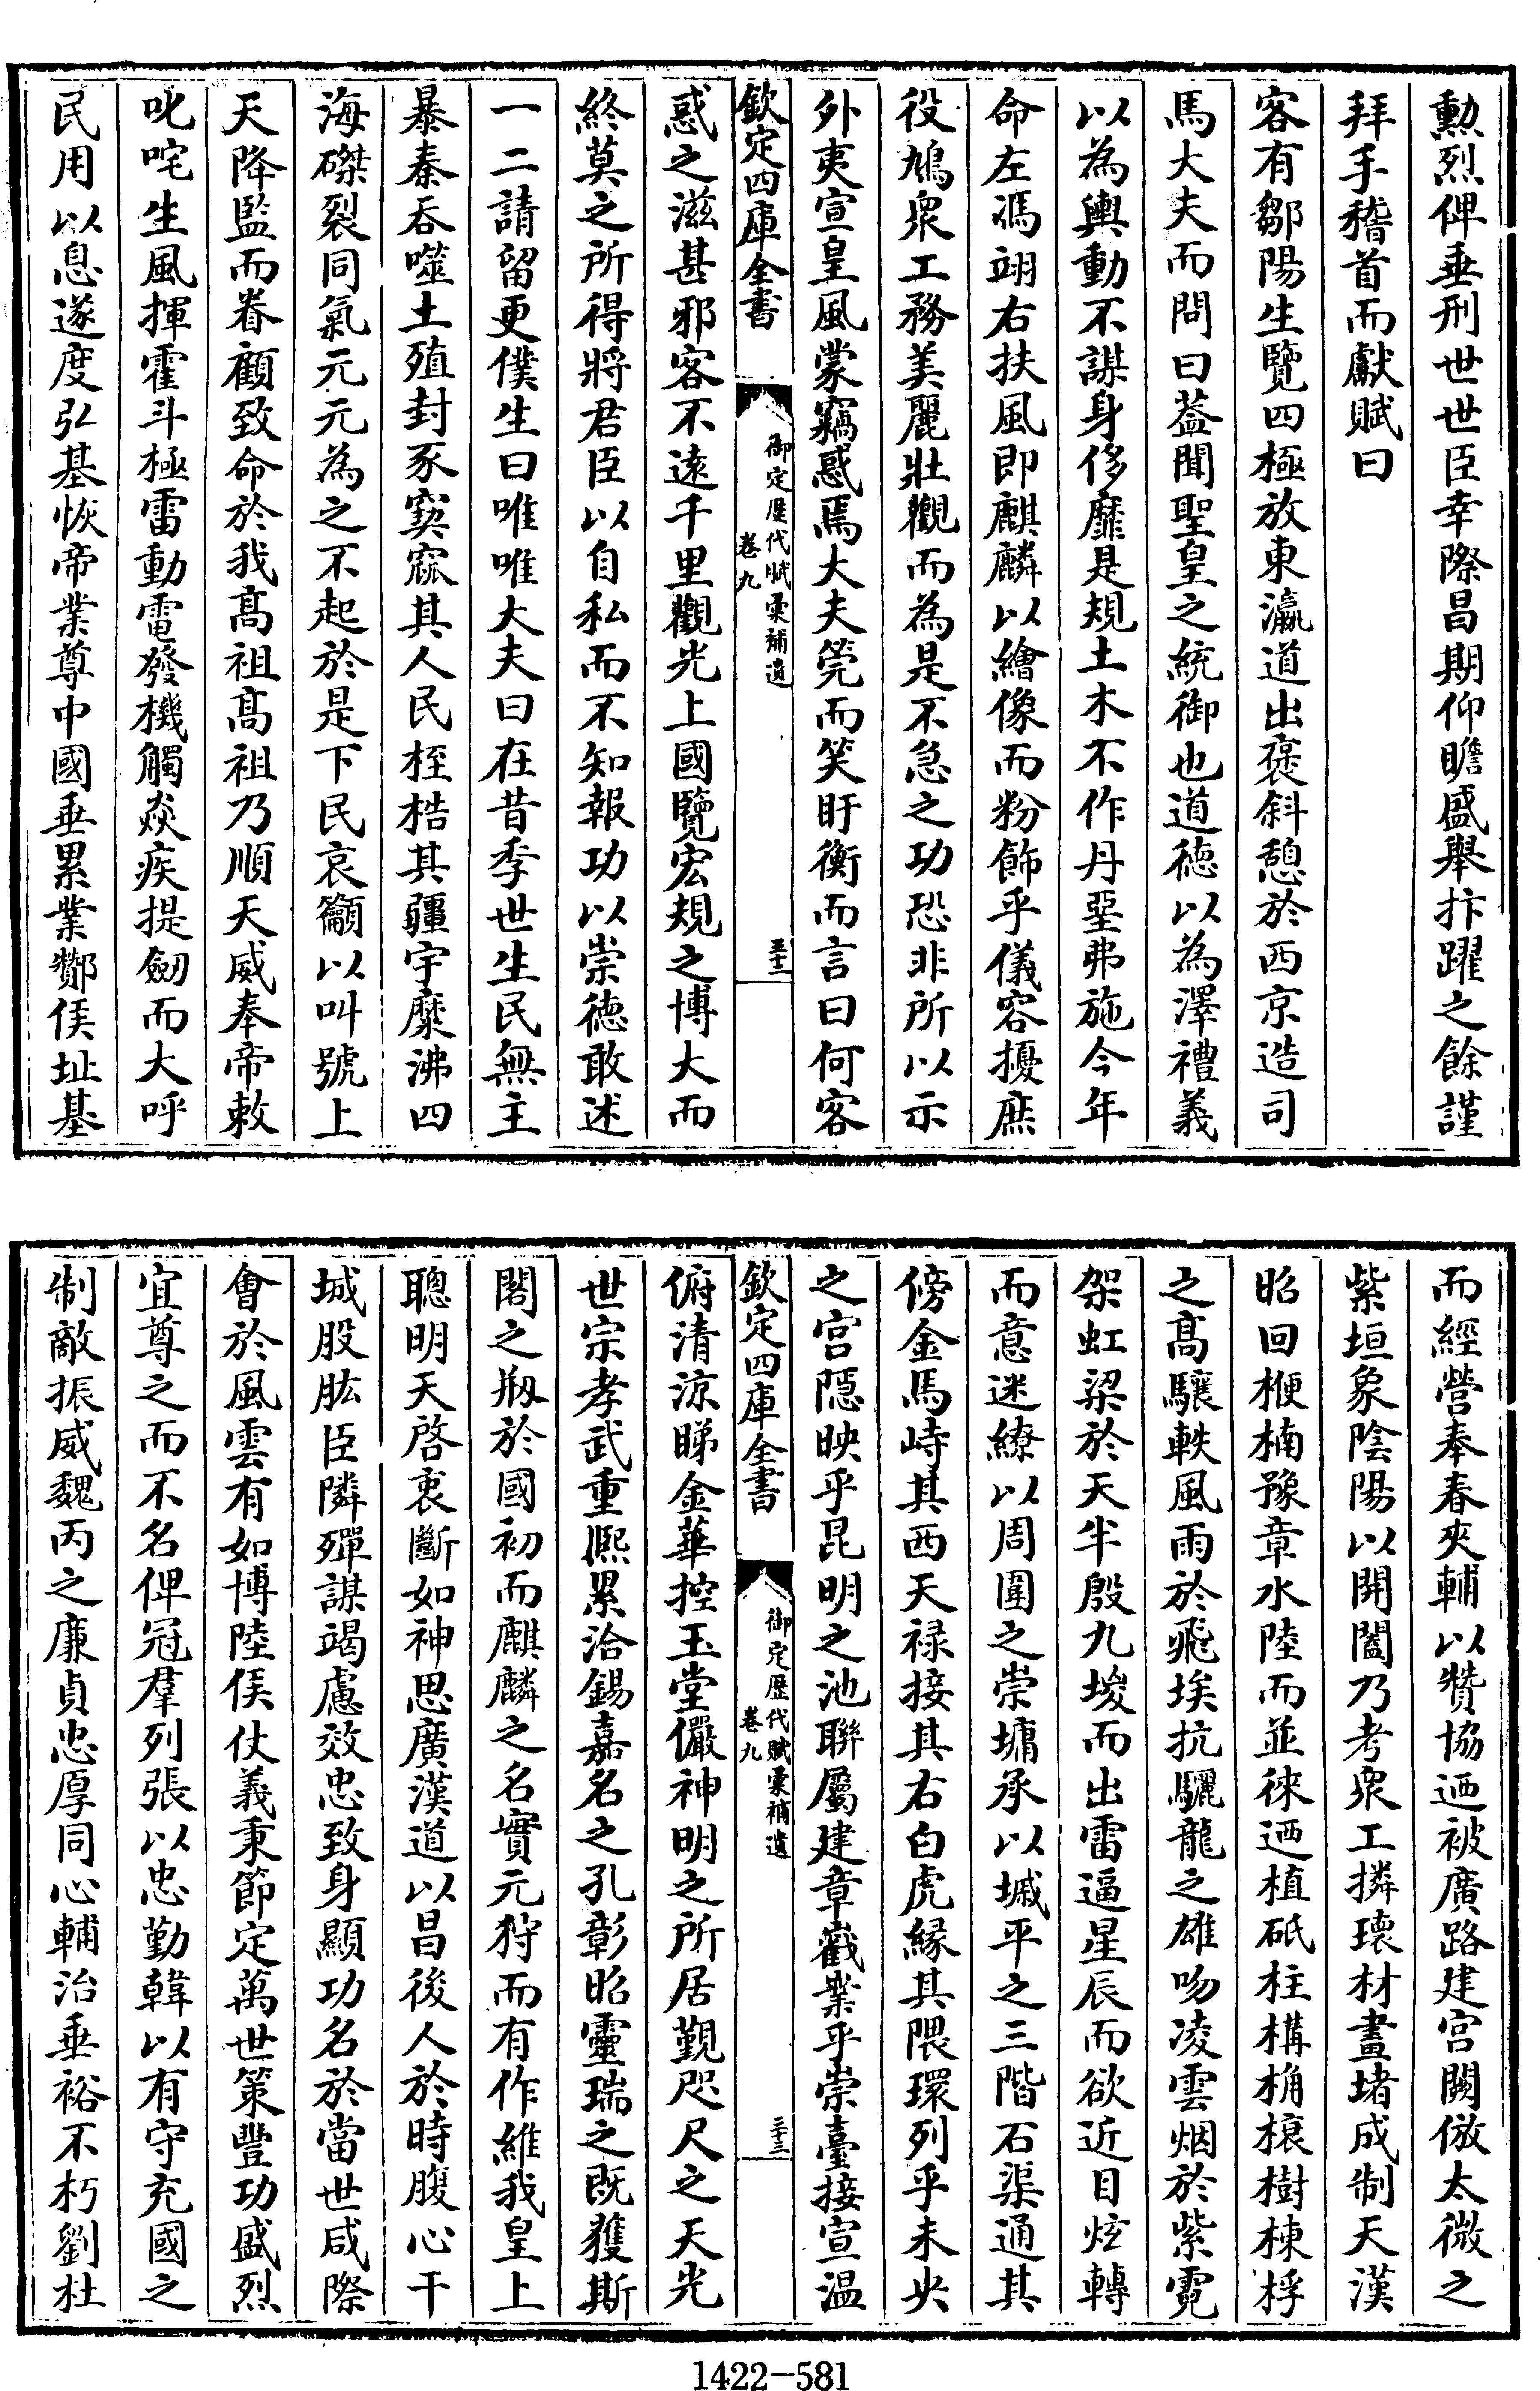 勲烈俾垂刑世世臣幸際昌期仰瞻盛舉抃躍之餘謹
拜手稽首而獻賦曰
客有鄒陽生覽四極放東瀛道出褒斜憩於西京造司
馬大夫而問曰葢聞聖皇之統御也道徳以為澤禮義
以為輿動不謀身侈靡是規土木不作丹堊弗施今年
命左馮翊右扶風即麒麟以繪像而粉飾乎儀容擾庶
役鳩衆工務美麗壯觀而為是不急之功恐非所以示
外夷宣皇風蒙竊惑焉大夫筦而笑盱衡而言曰何客
欽定四庫全書
御定歴代賦彚補遺
卷九
三十二
惑之滋甚邪客不逺千里觀光上國覽宏規之博大而
終莫之所得將君臣以自私而不知報功以崇徳敢述
一二請留更僕生曰唯唯大夫曰在昔季世生民無主
暴秦吞噬土殖封豕窫窳其人民桎梏其疆宇糜沸四
海磔裂同氣元元為之不起於是下民哀籲以叫號上
天降監而眷顧致命於我髙祖髙祖乃順天威奉帝敕
叱咤生風揮霍斗極雷動電發機觸焱疾提劒而大呼
民用以息遂度弘基恢帝業尊中國垂累業酇侯址基
而經營奉春夾輔以贊協迺被廣路建宫闕倣太微之
紫垣象陰陽以開闔乃考衆工撛瓌材畫堵成制天漢
昭回楩楠豫章水陸而並徠迺植砥柱構桷榱樹棟桴
之髙驤軼風雨於飛埃抗驪龍之雄吻凌雲烟於紫霓
架虹梁於天半殷九堫而出雷逼星辰而欲近目炫轉
而意迷繚以周圍之崇墉承以墄平之三階石渠通其
傍金馬峙其西天禄接其右白虎縁其隈環列乎未央
之宫隠映乎昆明之池聯屬建章嶻嶪乎崇臺接宣温
欽定四庫全書
御定歴代賦彚補遺
卷九
三十三
俯清涼睇金華控玉堂儼神明之所居覲咫尺之天光
世宗孝武重熈累洽錫嘉名之孔彰昭靈瑞之既獲斯
閣之剏於國初而麒麟之名實元狩而有作維我皇上
聰明天啓衷斷如神思廣漢道以昌後人於時腹心干
城股肱臣隣殫謀竭慮效忠致身顯功名於當世咸際
會於風雲有如博陸侯仗義秉節定萬世策豐功盛烈
宜尊之而不名俾冠羣列張以忠勤韓以有守充國之
制敵振威魏丙之廉貞忠厚同心輔治垂裕不朽劉杜
1422-581